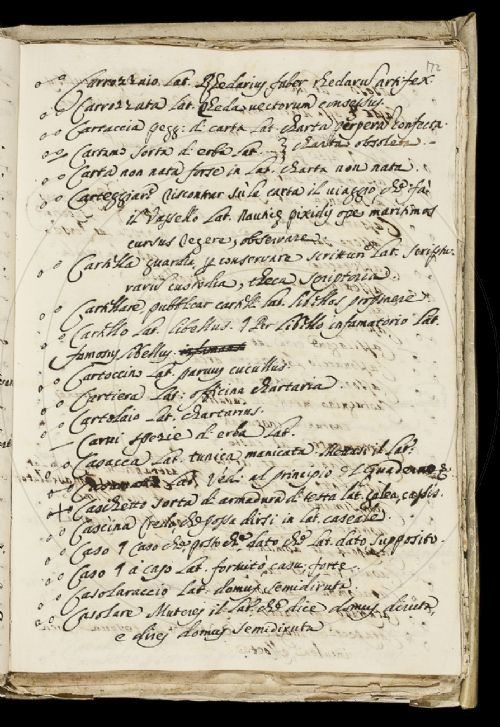 172
Carrozzaio Lat. Rhedarius faber rhedarus artifex.
Carrozzata Lat. Rheda vectorum consessus.
Cartaccia pegg. di carta Lat. charta perperā confecta
Cartamo sorta di erba Lat. charta obsoleta.
Carta non nata forse in Lat. charta non nata.
Carteggiare Riscontrar sù la carta il viaggio, che fa
il Vassello Lat. pixidis ope maritimos
cursus regere, observare.
Cartella guardia, p conservare scritture Lat. scriptu
raris custodia, theca scriptoria.
Cartellare pubblicar cartelli Lat. libellos proponere
Cartello Lat. libellus. ¶ Per libello infamatorio Lat.
famosus libellus
Cartoccino Lat. parvus cucullus.
Cartiera Lat. officina chartaria.
Cartolaio Lat. chartarius.
Carvi spezie di erba Lat.
Casacca Lat. tunica manicata il Lat.
Lat. Vedi al principio del Quaderno
Caschetto sorta di armadura di testa Lat. galea, cassis.
Cascina credo che possa dirsi in Lat. caseale.
Caso ¶ Caso che posto che dato che Lat. dato supposito.
Caso ¶ a caso Lat. fortuito, casu, forte.
Casolaraccio Lat. domus semidiruta.
Casolare Muterei il Lat. che dice domus diruta,
e direi domus semidiruta